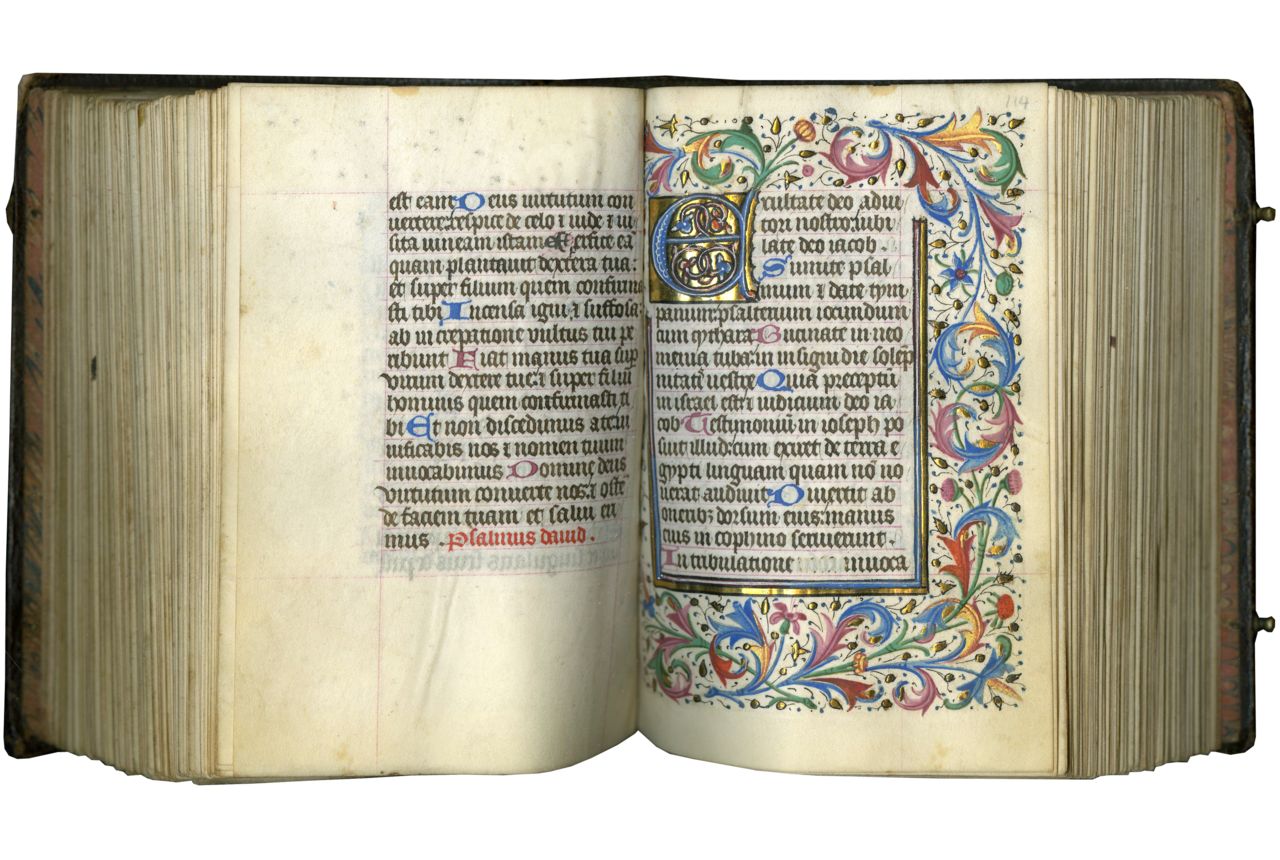 est eam: Deus uirtutum con
uertere: respice de celo ⁊ uide ⁊ ui
sita uineam istam Et ꝑfice eā
quam plantauit dextera tua:
et super filium quem confirma
sti tibi Incensa igni ⁊ suffossa:
ab increpatione vultus tui pe
ribunt Fiat manus tua sup
virum dextere tue: ⁊ super filiū
hominis quem confirmasti ti
bi Et non discedimus a te: ui
uificabis nos ⁊ nomen tuum
inuocabimus Domine deus
virtutum conuerte nos: ⁊ ostē
de faciem tuam et salui eri
mus . Psalmus dauid .
114
Exultate deo adiu
tori nostro: iubi
late deo iacob .
Sumite psal
mum ⁊ date tym
panum: psalterium iocundum
cum cythara Bucinate in neo
menia tuba: in insigni die solep
nitatis uestre Quia preceptū
in israel est: ⁊ iudicium deo ia
cob Testimonium in ioseph po
suit illud: cum exiret de terra e
gypti linguam quam nō no
uerat audiuit Diuertit ab
oneribꝫ dorsum eius: manus
eius in cophino seruierunt .
In tribulatione inuoca